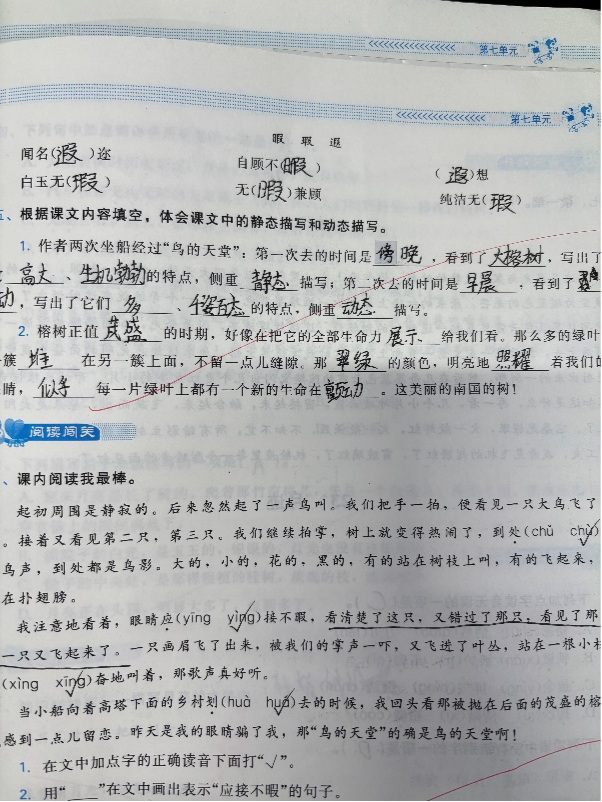 第七单元
第七单元
暇 瑕 遐
闻名(遐)迩 自顾不(暇) (遐)想
白玉无(瑕) 无(暇)兼顾 纯洁无(瑕)
五、根据课文内容填空，体会课文中的静态描写和动态描写。
1. 作者两次坐船经过“鸟的天堂”：第一次去的时间是傍晚，看到了大榕树，写出了
高大、生机勃勃的特点，侧重静态描写；第二次去的时间是早晨，看到了
动，写出了它们多、千姿百态的特点，侧重动态描写。
2. 榕树正值茂盛的时期，好像在把它的全部生命力展示给我们看。那么多的绿叶
簇堆在另一簇上面，不留一点儿缝隙。那翠绿的颜色，明亮地照耀着我们的
睛，似乎每一片绿叶上都有一个新的生命在颤动。这美丽的南国的树！
阅读闯关
、课内阅读我最棒。
起初周围是静寂的。后来忽然起了一声鸟叫。我们把手一拍，便看见一只大鸟飞了
。接着又看见第二只，第三只。我们继续拍掌，树上就变得热闹了，到处(chǔ chù√)
鸟声，到处都是鸟影。大的，小的，花的，黑的，有的站在树枝上叫，有的飞起来，
在扑翅膀。
我注意地看着，眼睛应(yīng yìng√)接不暇，看清楚了这只，又错过了那只；看见了那
一只又飞起来了。一只画眉飞了出来，被我们的掌声一吓，又飞进了叶丛，站在一根小枝
(xìng xīng√)奋地叫着，那歌声真好听。
当小船向着高塔下面的乡村划(huà huá√)去的时候，我回头看那被抛在后面的茂盛的榕
感到一点儿留恋。昨天是我的眼睛骗了我，那“鸟的天堂”的确是鸟的天堂啊！
1. 在文中加点字的正确读音下面打“√”。
2. 用“____”在文中画出表示“应接不暇”的句子。